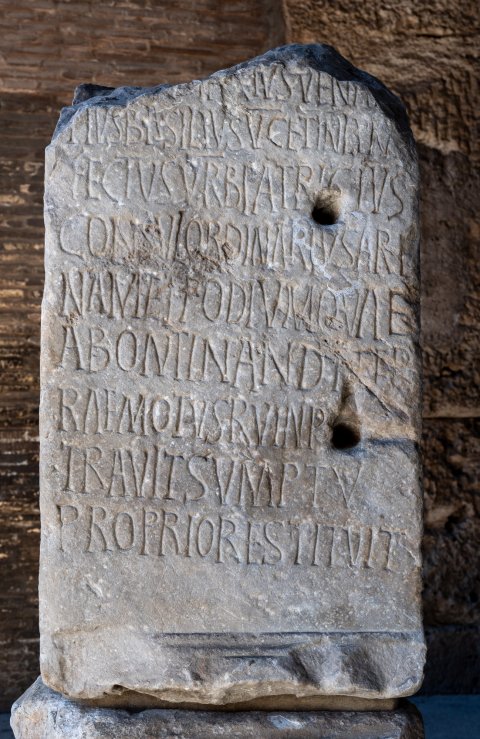 RIVS VENAN
TIVS BASILIVS V C ET INL PRAE
FECTVS VRB PATRICIVS
CONSVL ORDINARIVS ARE
NAM ET PODIVM QVAE
ABOMINANDI TER
RAE MOTVS RVIN PR
TRAVIT SVMPTV
PROPRIO RESTITVIT